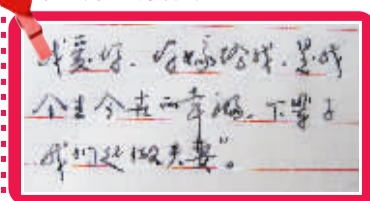 我爱你,你嫁给我,是我
今生今世的幸福,下辈子
我们还做夫妻”。